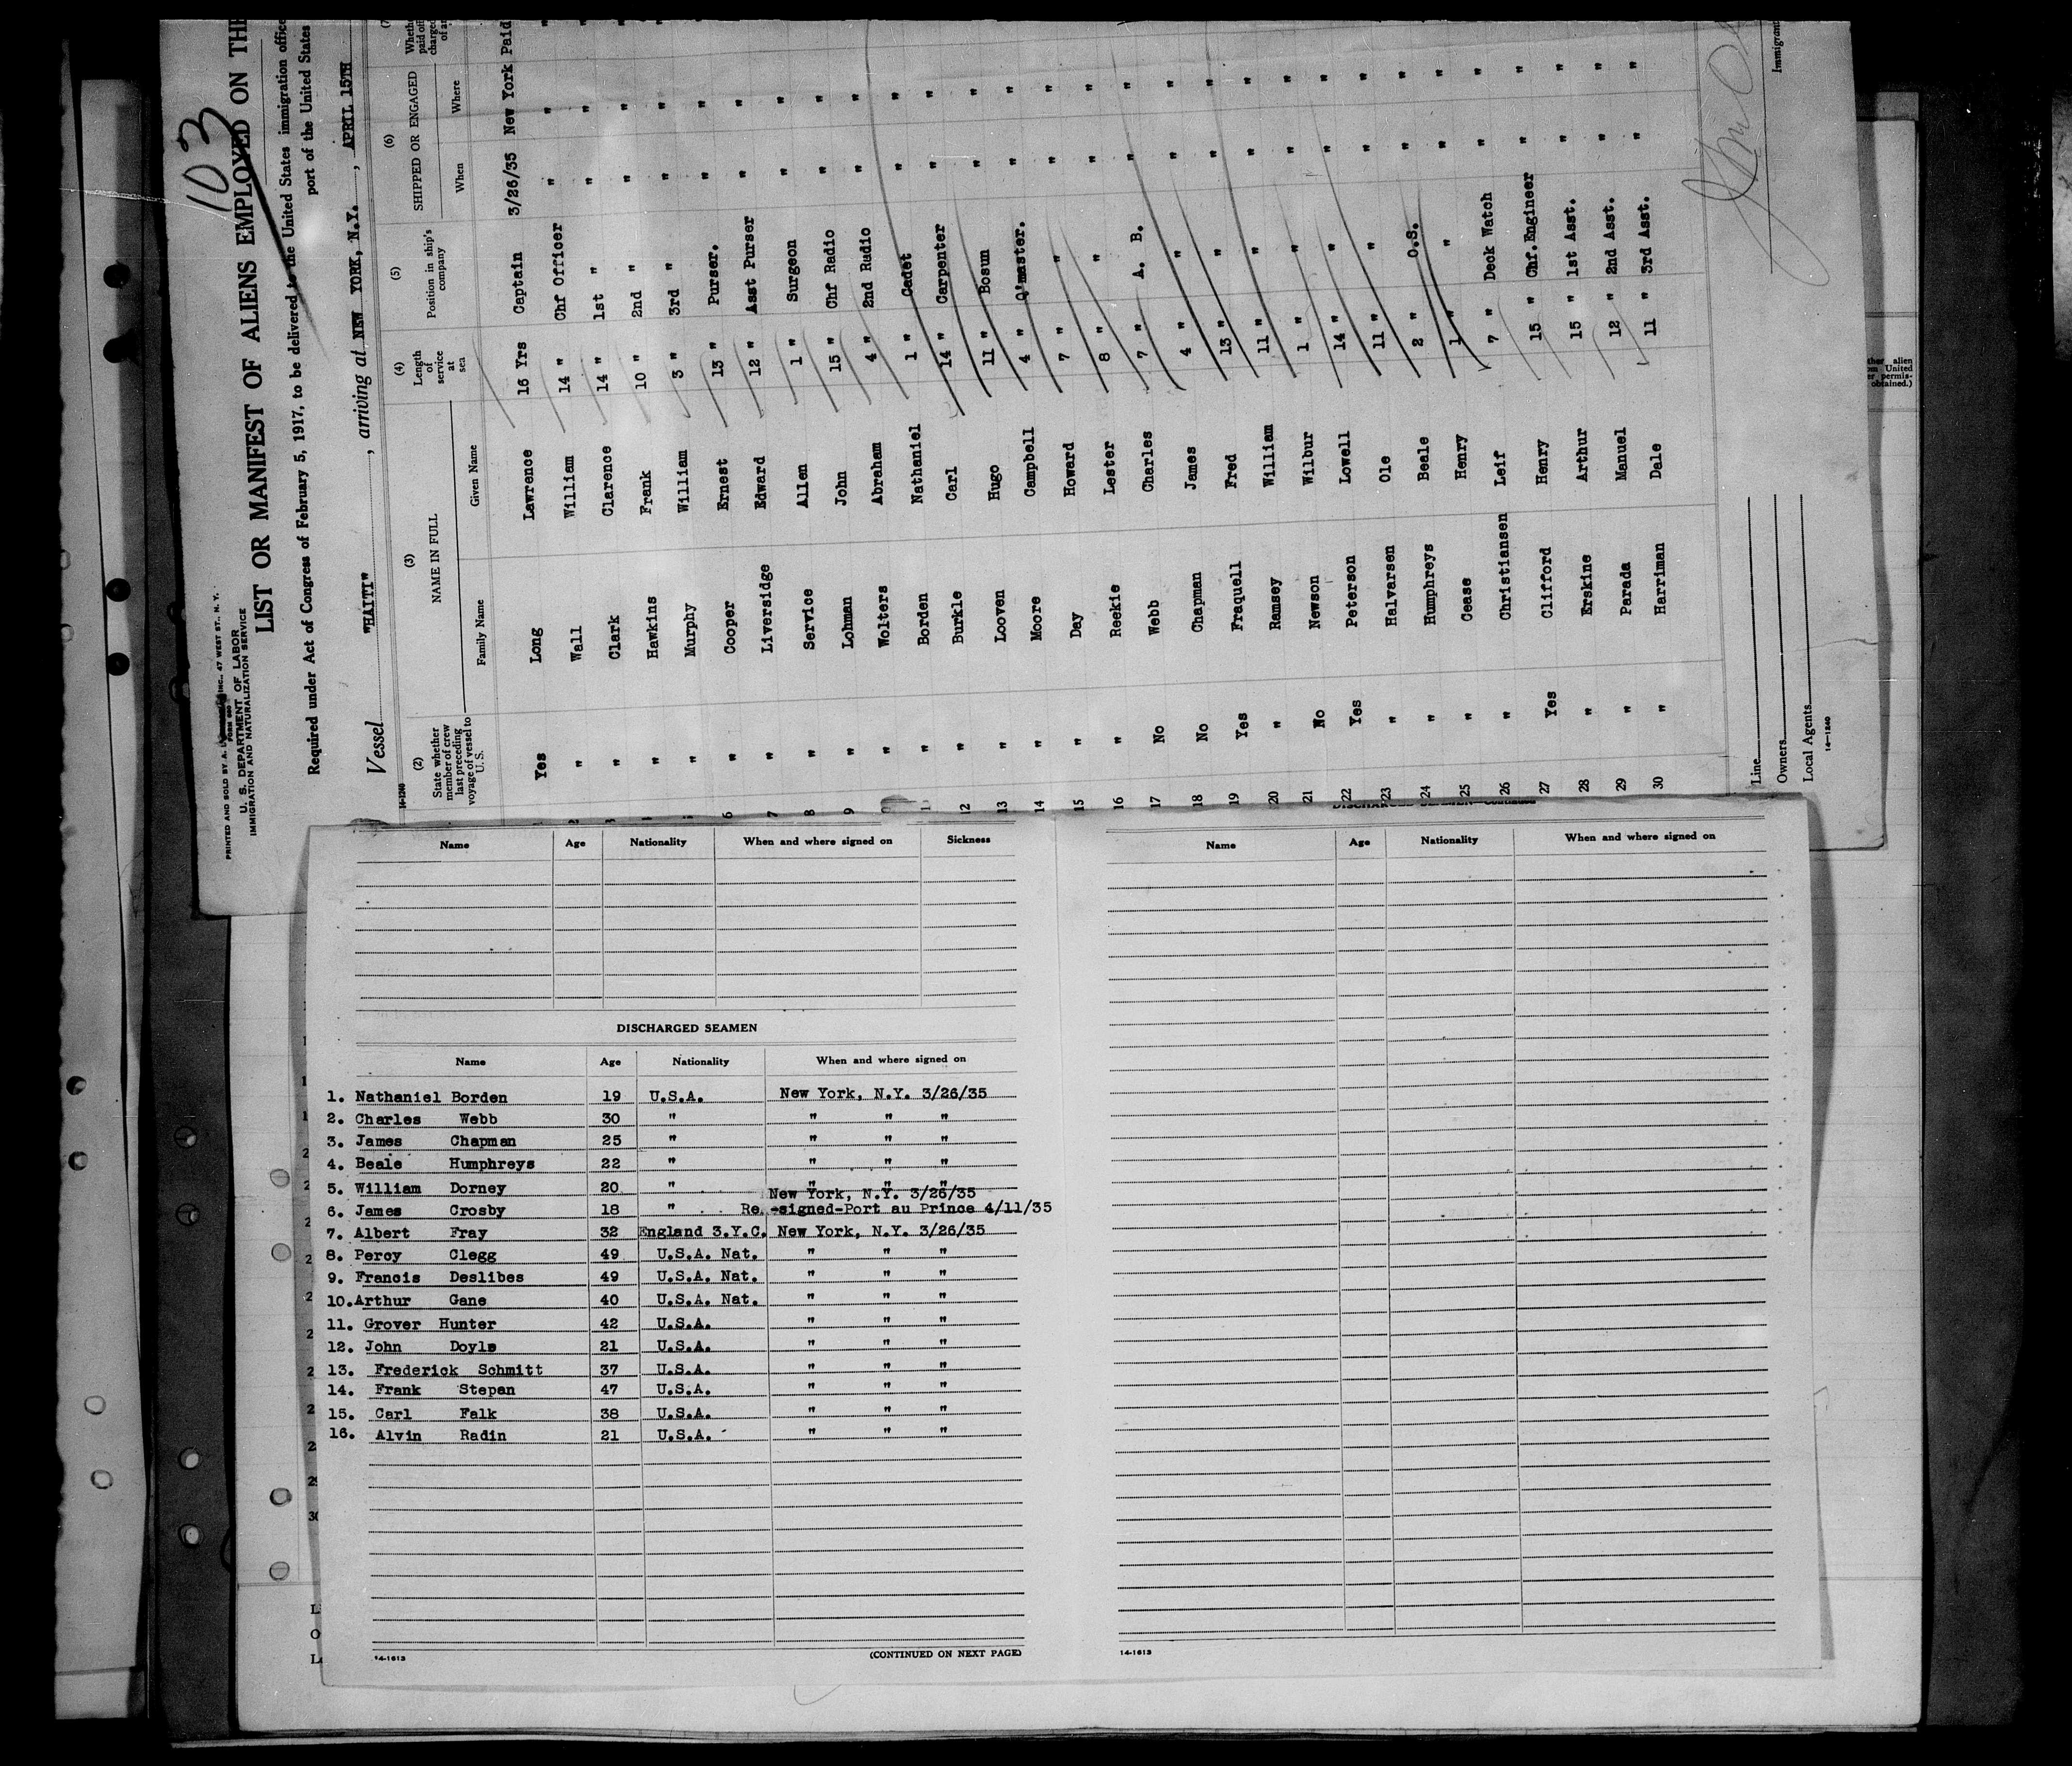 103
PRINTED AND SOLD BY A. INC., 47 WEST ST., N. Y.
U. S. DEPARTMENT OF LABOR
IMMIGRATION AND NATURALIZATION SERVICE
LIST OR MANIFEST OF ALIENS EMPLOYED ON THE
Required under Act of Congress of February 5, 1917, to be delivered to the United States immigration office
port of the United States
Vessel "HAITI", arriving at NEW YORK, N.Y., APRIL 15TH
14-1240
(2) (3) (4) (5) (6) (7
State whether member of crew last preceding voyage of vessel to U.S. NAME IN FULL Family Name Given Name Length of service at sea Position in ship's company SHIPPED OR ENGAGED When Where
Yes Long Lawrence 16 Yrs Captain 3/26/35 New York Paid
" Wall William 14 " Chf Officer " "
" Clark Clarence 14 " 1st " " "
" Hawkins Frank 10 " 2nd " " "
" Murphy William 3 " 3rd " " "
6 " Cooper Ernest 13 " Purser. " "
7 " Liversidge Edward 12 " Asst Purser " "
8 " Service Allen 1 " Surgeon " "
9 " Lohman John 15 " Chf Radio " "
" Wolters Abraham 4 " 2nd Radio " "
" Borden Nathaniel 1 " Cadet " "
12 " Burkle Carl 14 " Carpenter " "
13 " Looven Hugo 11 " Bosun " "
14 " Moore Campbell 4 " Q'master. " "
15 " Day Howard 7 " " " "
16 " Reekie Lester 8 " " " "
17 No Webb Charles 7 " A. B. " "
18 No Chapman James 4 " " " "
19 Yes Fraquell Fred 13 " " " "
20 " Ramsey William 11 " " " "
21 No Newson Wilbur 1 " " " "
22 Yes Peterson Lowell 14 " " " "
23 " Halvarsen Ole 11 " " " "
24 " Humphreys Beale 2 " O.S. " "
25 " Cease Henry 1 " " " "
26 " Christiansen Leif 7 " Deck Watch " "
27 Yes Clifford Henry 15 " Chf. Engineer " "
28 " Erskine Arthur 15 " 1st Asst. " "
29 " Parada Manuel 12 " 2nd Asst. " "
30 " Harriman Dale 11 " 3rd Asst. " "
Line
Owners
Local Agents
14-1240
Immigrant
ther alien
om United
er permis-
obtained.)
Name Age Nationality When and where signed on Sickness
DISCHARGED SEAMEN
Name Age Nationality When and where signed on
1. Nathaniel Borden 19 U.S.A. New York, N.Y. 3/26/35
2. Charles Webb 30 " " " "
3. James Chapman 25 " " " "
4. Beale Humphreys 22 " " " "
5. William Dorney 20 " " " "
New York, N.Y. 3/26/35
6. James Crosby 18 " Re.-signed-Port au Prince 4/11/35
7. Albert Fray 32 England 3.Y.C. New York, N.Y. 3/26/35
8. Percy Clegg 49 U.S.A. Nat. " " "
9. Francis Deslibes 49 U.S.A. Nat. " " "
10. Arthur Gane 40 U.S.A. Nat. " " "
11. Grover Hunter 42 U.S.A. " " "
12. John Doyle 21 U.S.A. " " "
13. Frederick Schmitt 37 U.S.A. " " "
14. Frank Stepan 47 U.S.A. " " "
15. Carl Falk 38 U.S.A. " " "
16. Alvin Radin 21 U.S.A. " " "
14-1613 (CONTINUED ON NEXT PAGE)
DISCHARGED SEAMEN—Continued
Name Age Nationality When and where signed on
14-1613